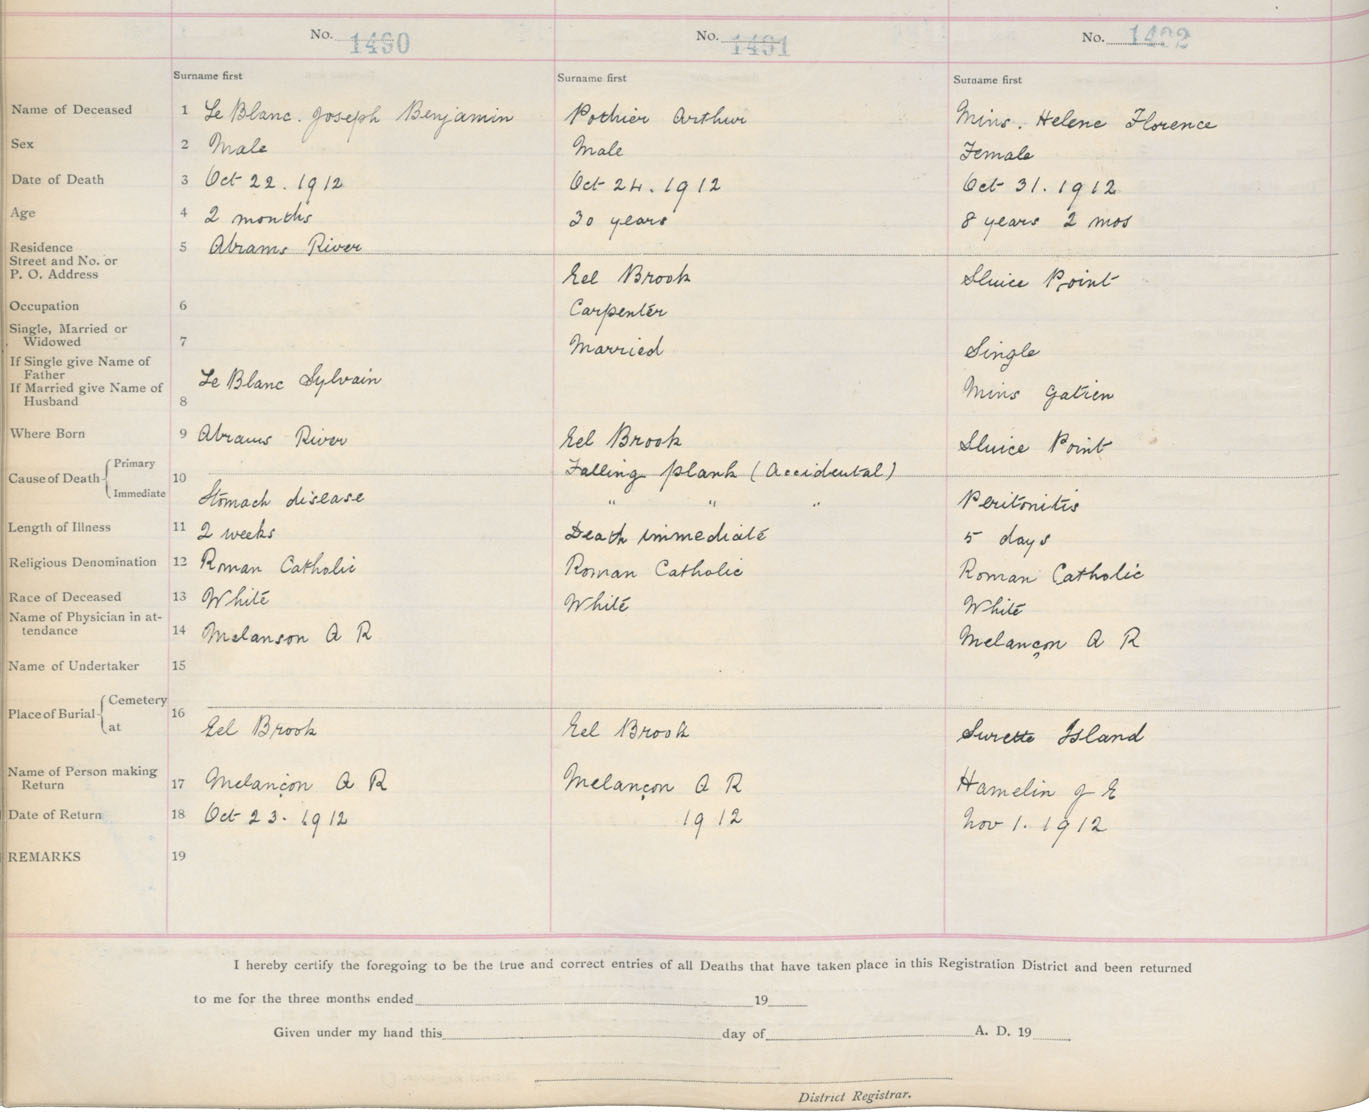 No. 1490 No. 1491 No. 1492
Surname first Surname first Surname first
Name of Deceased 1 Le Blanc. Joseph Benjamin Pothier Arthur Mins. Helene Florence
Sex 2 Male Male Female
Date of Death 3 Oct 22. 1912 Oct 24. 1912 Oct 31. 1912
Age 4 2 months 30 years 8 years 2 mos
Residence 5 Abrams River
Street and No. or
P. O. Address Eel Brook Sluice Point
Occupation 6 Carpenter
Single, Married or
Widowed 7 Married Single
If Single give Name of
Father
If Married give Name of Le Blanc Sylvain Mins Gatien
Husband 8
Where Born 9 Abrams River Eel Brook Sluice Point
Cause of Death Primary 10 Falling plank (Accidental)
Immediate Stomach disease " " " Peritonitis
Length of Illness 11 2 weeks Death immediate 5 days
Religious Denomination 12 Roman Catholic Roman Catholic Roman Catholic
Race of Deceased 13 White White White
Name of Physician in at-
tendance 14 Melanson A R Melançon A R
Name of Undertaker 15
Place of Burial Cemetery 16
at Eel Brook Eel Brook Surette Island
Name of Person making
Return 17 Melançon A R Melançon A R Hamelin J E
Date of Return 18 Oct 23. 1912 1912 Nov 1. 1912
REMARKS 19
I hereby certify the foregoing to be the true and correct entries of all Deaths that have taken place in this Registration District and been returned
to me for the three months ended 19
Given under my hand this day of A. D. 19
District Registrar.